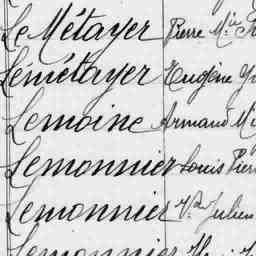 Le Métayer Pierre M.ie
Lémétayer Eugène
Lemoine Armand
Lemonnier Louis Pierre
Lemonnier V.or Julien
Lemonnier